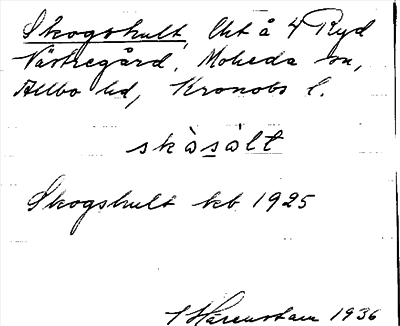 Skogshult, Lht å 4 Ryd
Västregård, Moheda sn,
Allbo hd, Kronobs l.
skàsàlt
Skogshult kb 1925
Harenstam 1936